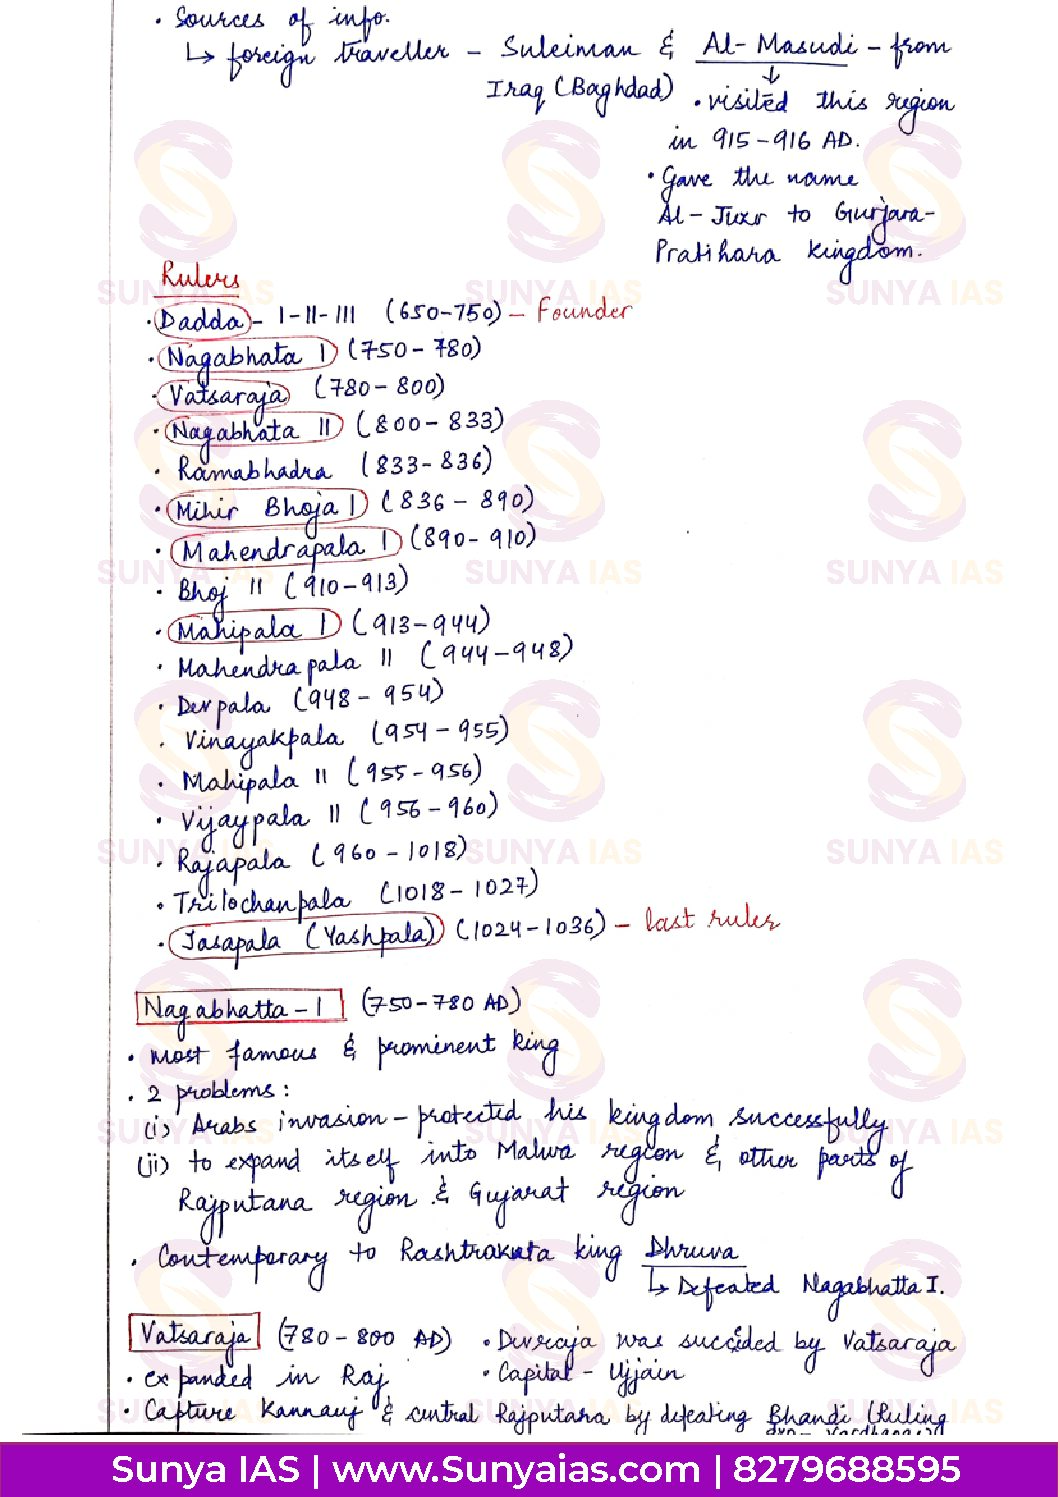 · Sources of info.
↳ foreign traveller – Suleiman & Al-Masudi – from
Iraq (Baghdad)
↓
· visited this region
in 915-916 AD.
· Gave the name
Al-Juzr to Gurjara-
Pratihara kingdom.
Rulers
· Dadda - I-II-III (650-750) – Founder
· Nagabhata I (750-780)
· Vatsaraja (780-800)
· Nagabhata II (800-833)
· Ramabhadra (833-836)
· Mihir Bhoja I (836-890)
· Mahendrapala I (890-910)
· Bhoj II (910-913)
· Mahipala I (913-944)
· Mahendrapala II (944-948)
· Devpala (948-954)
· Vinayakpala (954-955)
· Mahipala II (955-956)
· Vijaypala II (956-960)
· Rajapala (960-1018)
· Trilochanpala (1018-1027)
· Jasapala (Yashpala) (1024-1036) – last ruler
Nagabhatta-I (750-780 AD)
· Most famous & prominent king
· 2 problems:
(i) Arabs invasion – protected his kingdom successfully
(ii) to expand itself into Malwa region & other parts of
Rajputana region & Gujarat region
· Contemporary to Rashtrakuta king Dhruva
↳ Defeated Nagabhatta I.
Vatsaraja (780-800 AD) · Devraja was succided by Vatsaraja
· expanded in Raj · Capital – Ujjain
· Capture Kannauj & central Rajputana by defeating Bhandi (Ruling
SUNYA IAS
Sunya IAS | www.Sunyaias.com | 8279688595